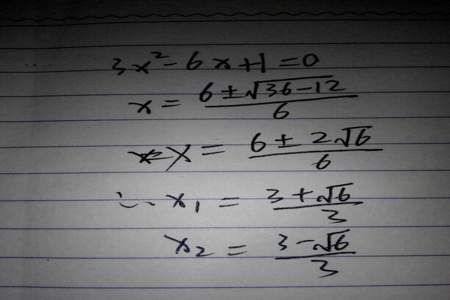 3x²-6x+1=0
x=(6±√(36-12))/6
x=(6±2√6)/6
∴x₁=(3+√6)/3
x₂=(3-√6)/3